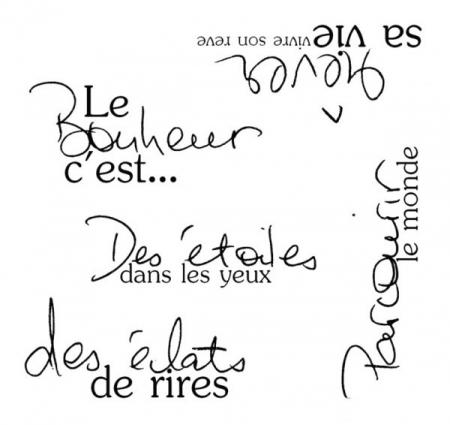 Le
Bonheur
c'est...
Rêver
sa vie vivre son reve
Des étoiles
dans les yeux
Parcourir
le monde
des éclats
de rires